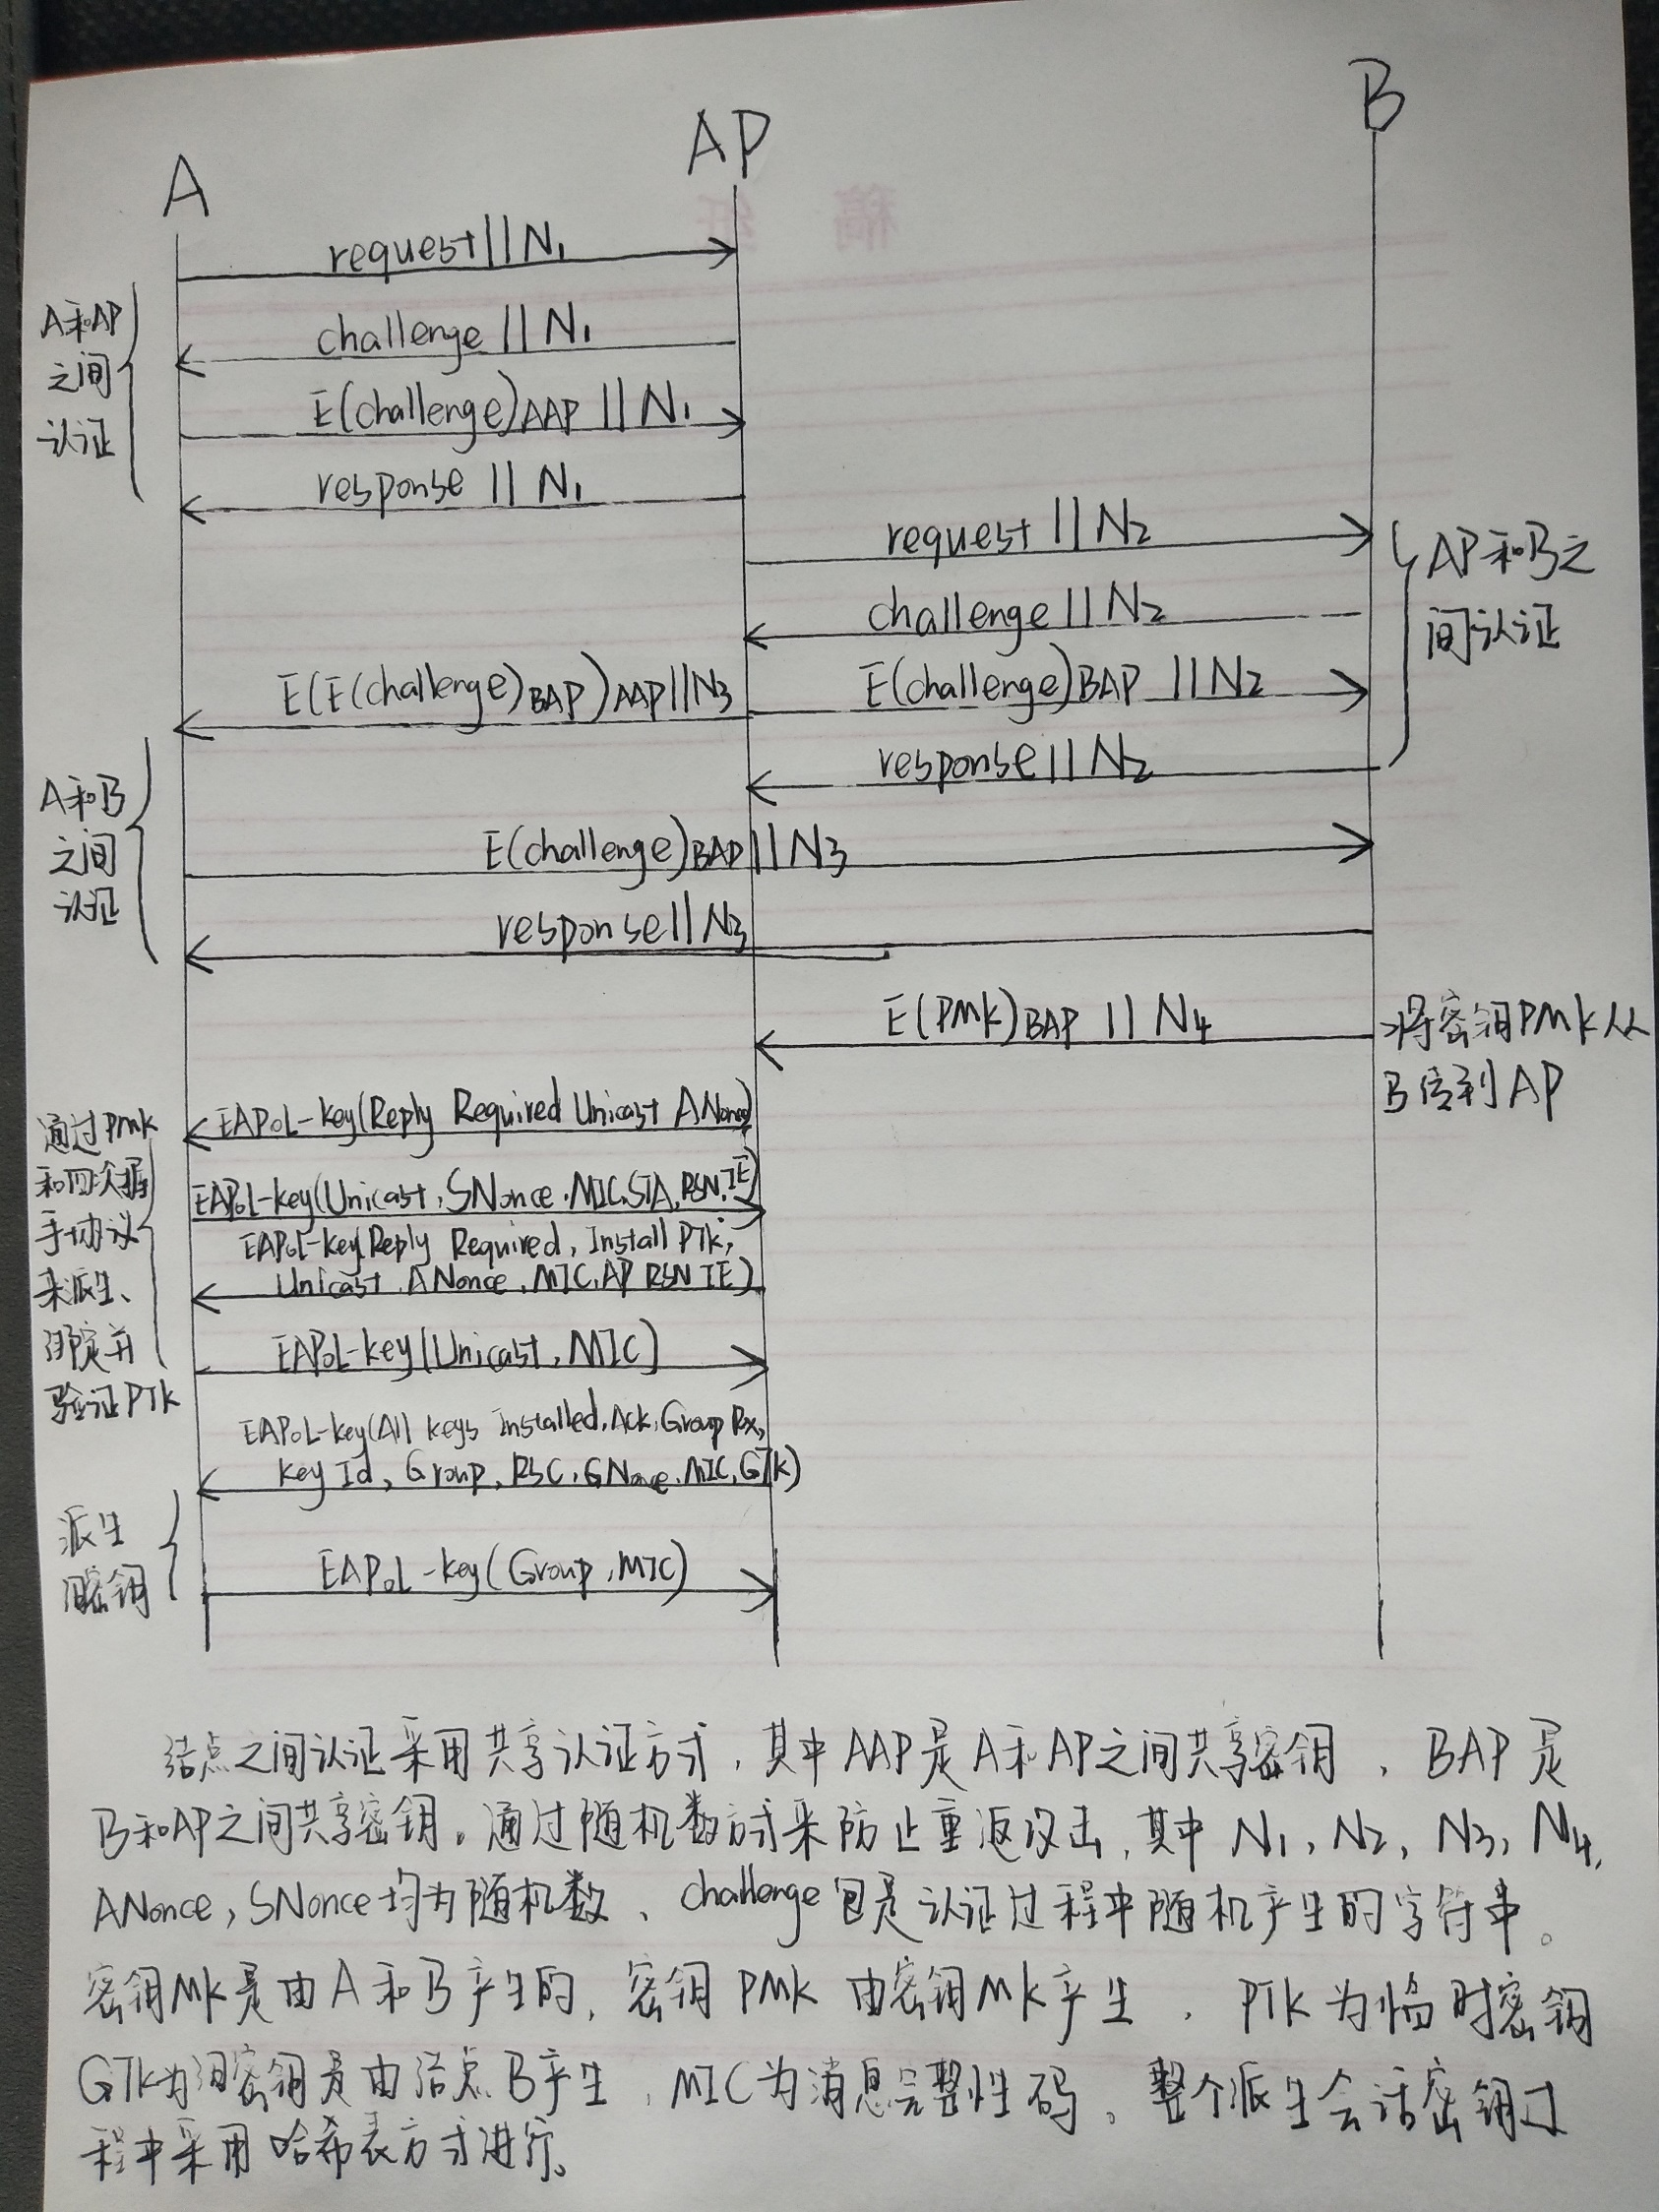 A
AP
B
request||N₁
A和AP
之间
认证
challenge||N₁
E(challenge)AAP||N₁
response||N₁
request||N₂
AP和B之
间认证
challenge||N₂
E(E(challenge)BAP)AAP||N₃
E(challenge)BAP||N₂
response||N₂
A和B
之间
认证
E(challenge)BAP||N₃
response||N₃
E(PMK)BAP||N₄
将密钥PMK从
B传到AP
通过PMK
和四次握
手协议
来派生、
绑定并
验证PTK
EAPoL-key(Reply Required Unicast ANonce)
EAPoL-key(Unicast,SNonce,MIC,STA,RSN,IE)
EAPoL-key(Reply Required, Install PTK,
Unicast,ANonce,MIC,AP RSN IE)
EAPoL-key(Unicast,MIC)
EAPoL-key(All keys installed,Ack,Group Rx,
key Id, Group, RSC,GNonce,MIC,GTK)
派生
组密钥
EAPoL-key(Group,MIC)
结点之间认证采用共享认证方式,其中AAP是A和AP之间共享密钥,BAP是
B和AP之间共享密钥。通过随机数方式来防止重返攻击,其中N₁,N₂,N₃,N₄,
ANonce,SNonce均为随机数、challenge包是认证过程中随机产生的字符串。
密钥MK是由A和B产生的,密钥PMK由密钥MK产生,PTK为临时密钥
GTK为组密钥是由结点B产生,MIC为消息完整性码。整个派生会话密钥过
程中采用哈希表方式进行。
稿 纸